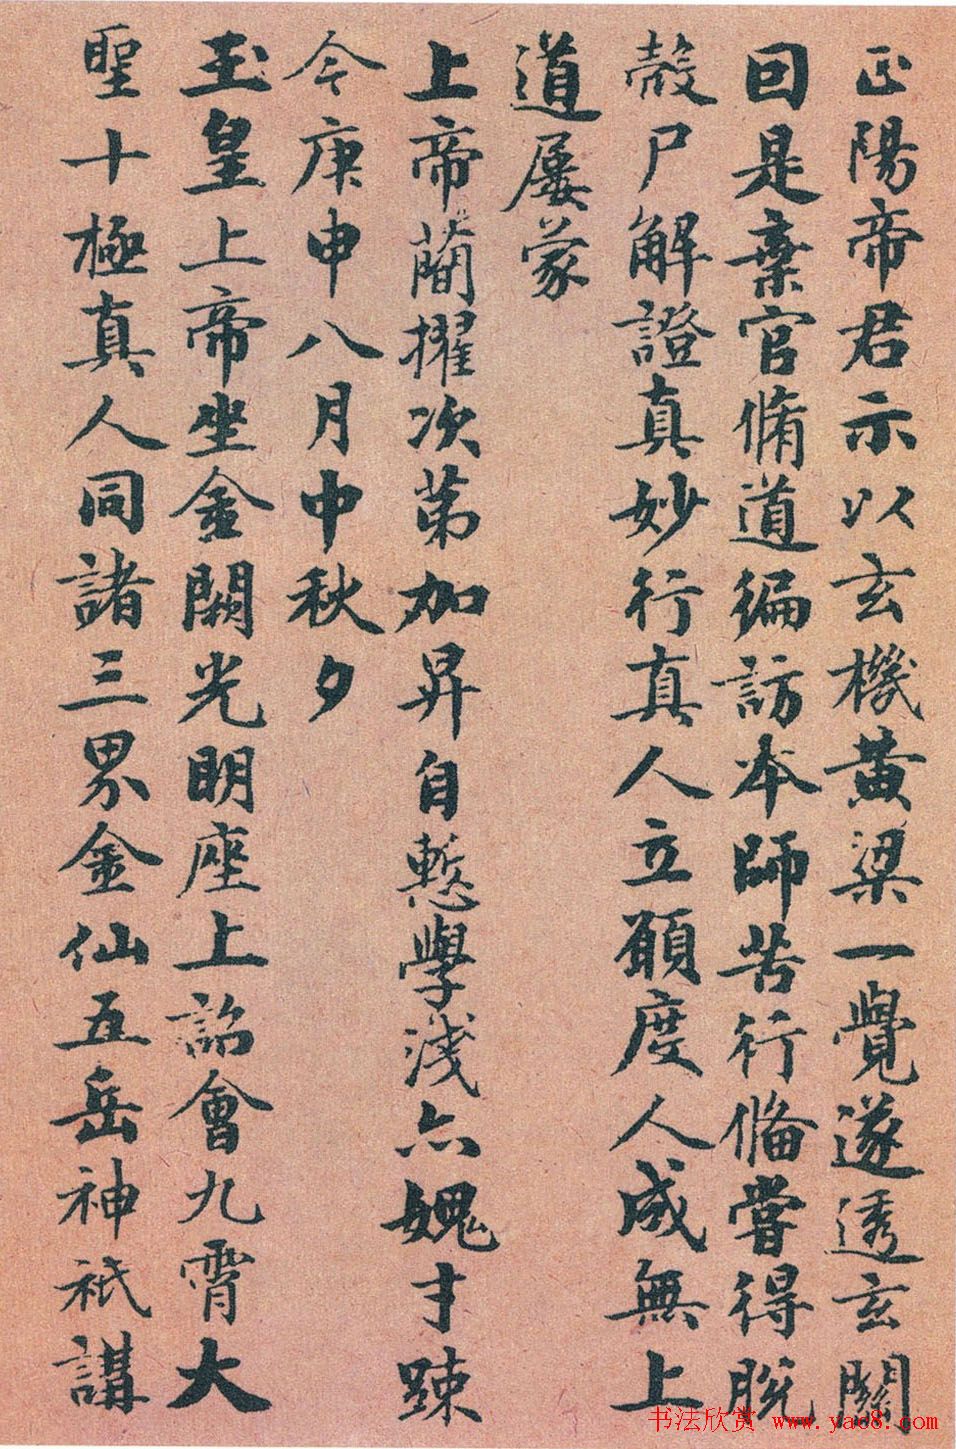 正陽帝君示以玄機黃梁一覺遂透玄關
囙是棄官脩道徧訪本師苦行備嘗得脫
殼尸解證真妙行真人立願度人成無上
道屢蒙
上帝簡擢次第加昇自慙學淺亦媿才踈
今庚申八月中秋夕
玉皇上帝坐金闕光明座上詔會九霄大
聖十極真人同諸三界金仙五岳神祇講
书法欣赏 www.yac8.com